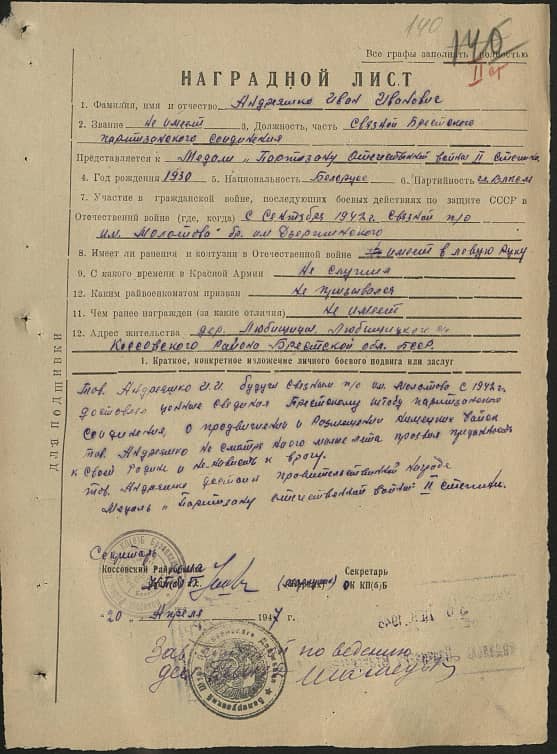 140
140
Все графы заполнять полностью
НАГРАДНОЙ ЛИСТ
1. Фамилия, имя и отчество Андреяшко Иван Иванович
2. Звание Не имеет 3. Должность, часть Связной Брестского
партизанского соединения
Представляется к Медали „Партизану отечественной войны II степени
4. Год рождения 1930 5. Национальность Белорус 6. Партийность чл. ВЛКСМ
7. Участие в гражданской войне, последующих боевых действиях по защите СССР в
Отечественной войне (где, когда) С Сентября 1942 г. Связной п/о
им. Молотова бр. им Дзержинского
8. Имеет ли ранения и контузия в Отечественной войне имеет в левую руку
9. С какого времени в Красной Армии Не служил
12. Каким райвоенкоматом призван Не призывался
11. Чем ранее награжден (за какие отличия) Не имеет
12. Адрес жительства дер. Любищицы, Любищицкого с/с
Коссовского района Брестской обл. БССР.
1. Краткое, конкретное изложение личного боевого подвига или заслуг
Тов. Андреяшко И.И. будучи связным п/о им. Молотова с 1942 г.
доставлял ценные сведения Брестскому штабу партизанского
соединения, о продвижении и размещении немецких войск
тов. Андреяшко не смотря на его малые лета проявил преданность
к своей Родине и не нависть к врагу.
Тов. Андреяшко достоин правительственной награды
Медаль „Партизану отечественной войны II степени.
ДЛЯ ПОДШИВКИ
Секретарь
Коссовский Рай Секретарь
КП(б)Б
20 „ Апреля 1947 г